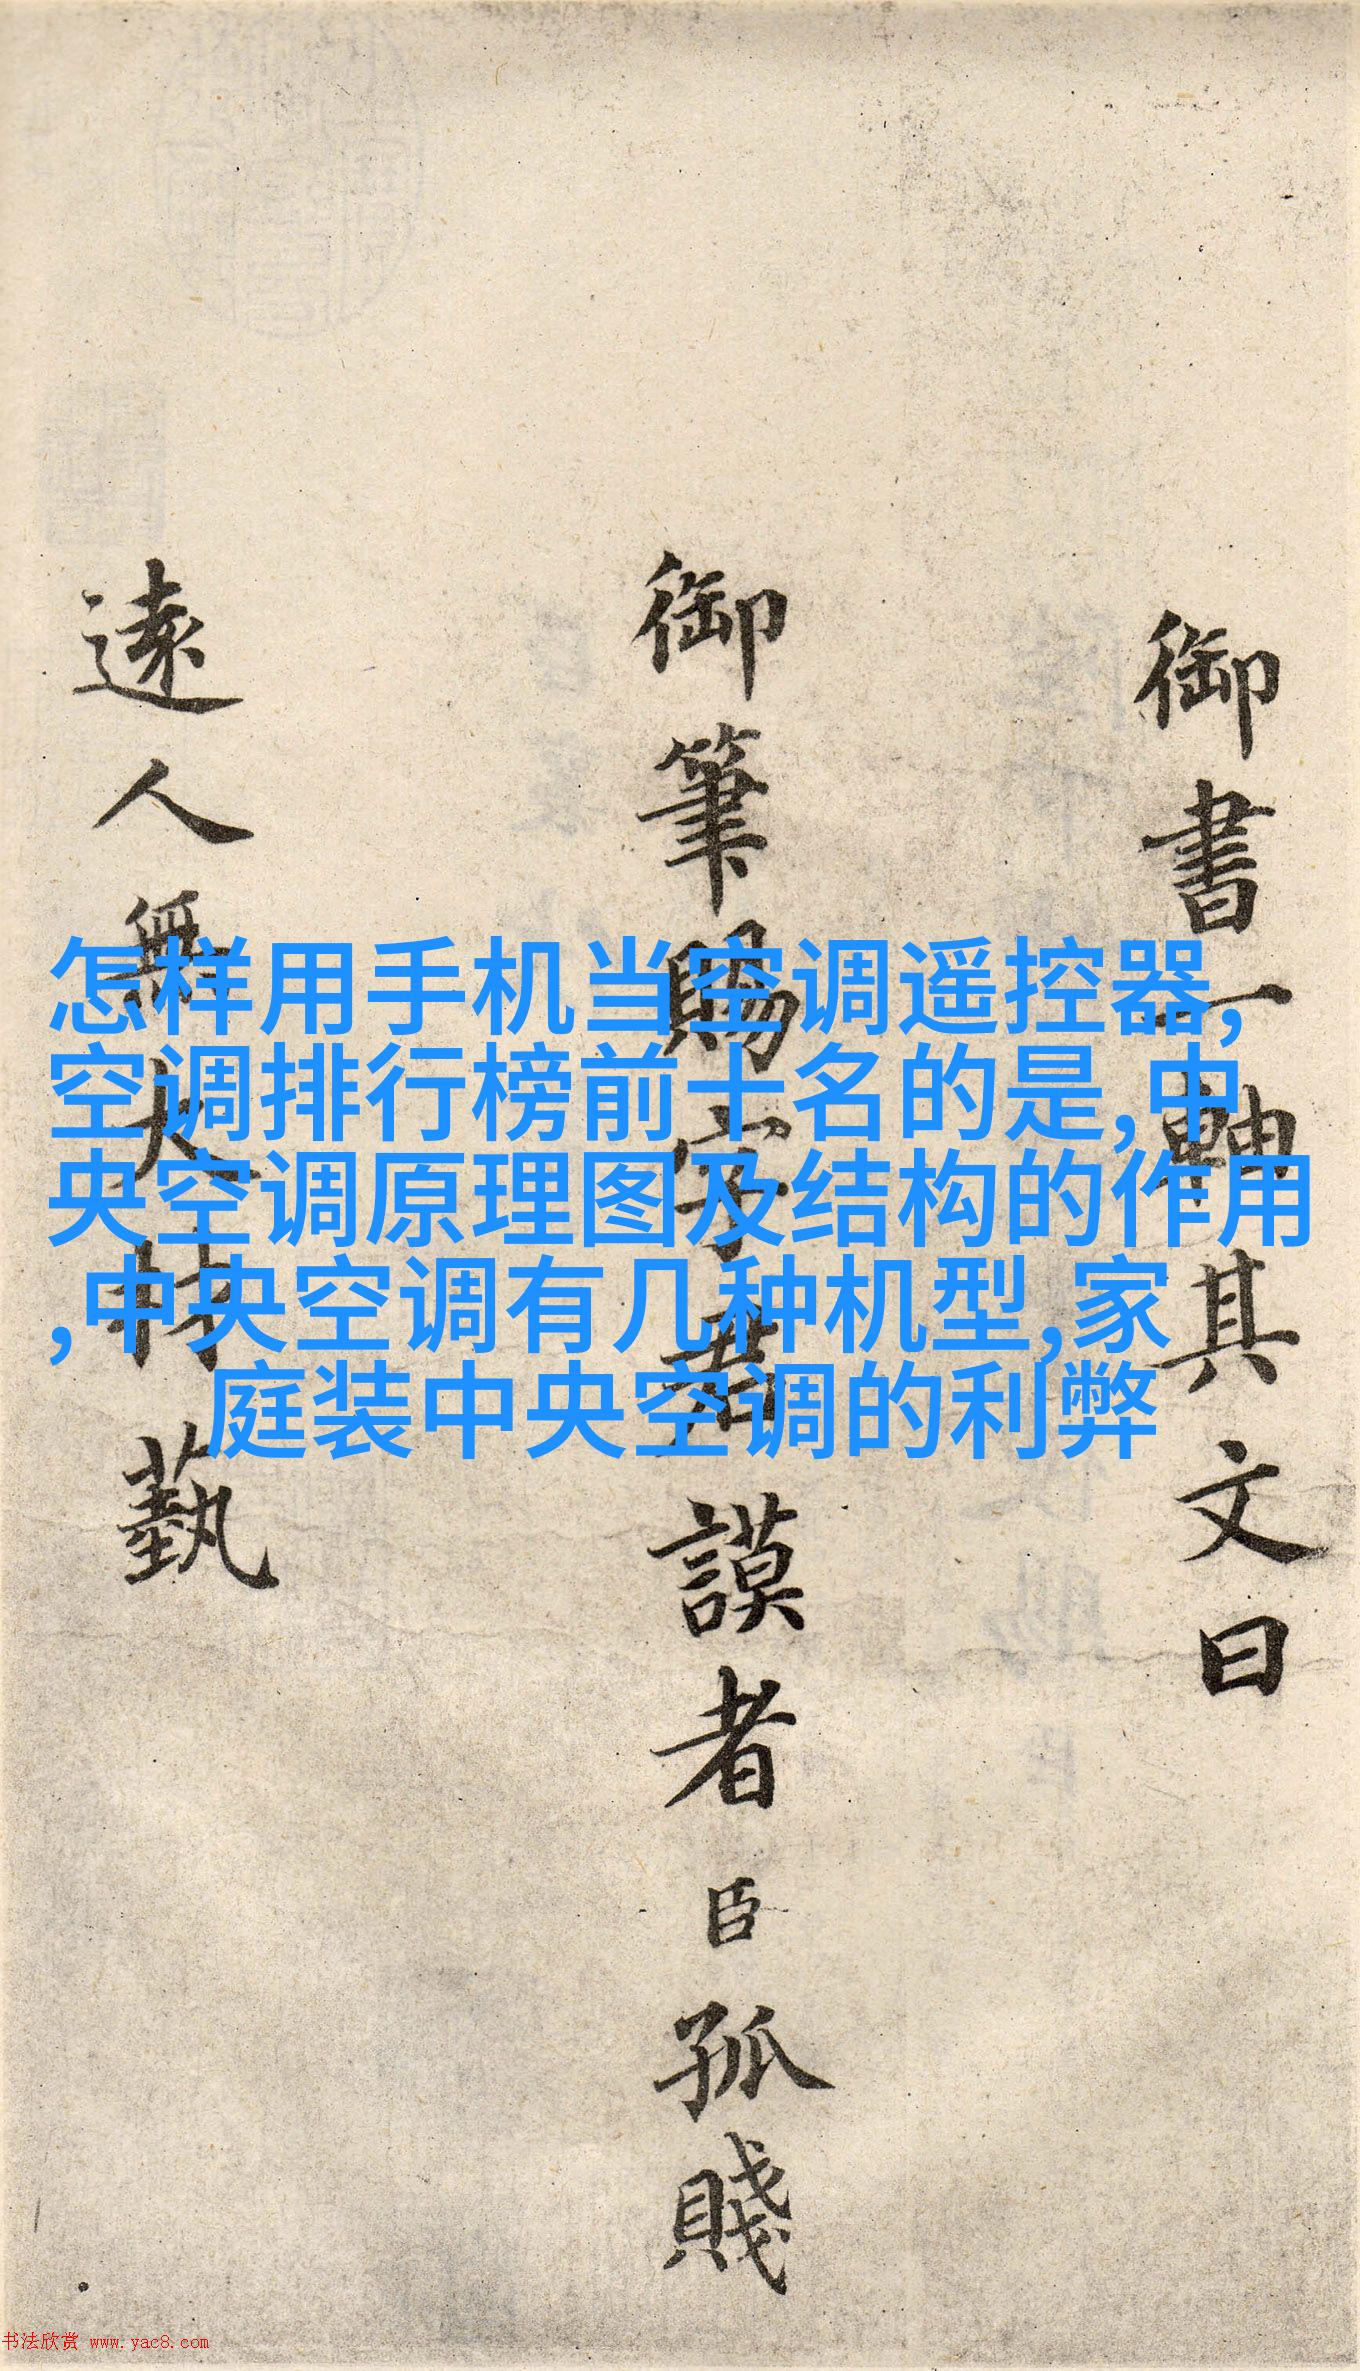 御書一軸其文曰
御筆賜字君謨者臣孤賤
遠人無大材藝
怎样用手机当空调遥控器,
空调排行榜前十名的是,中
央空调原理图及结构的作用
,中央空调有几种机型,家
庭装中央空调的利弊
书法欣赏 www.yac8.com